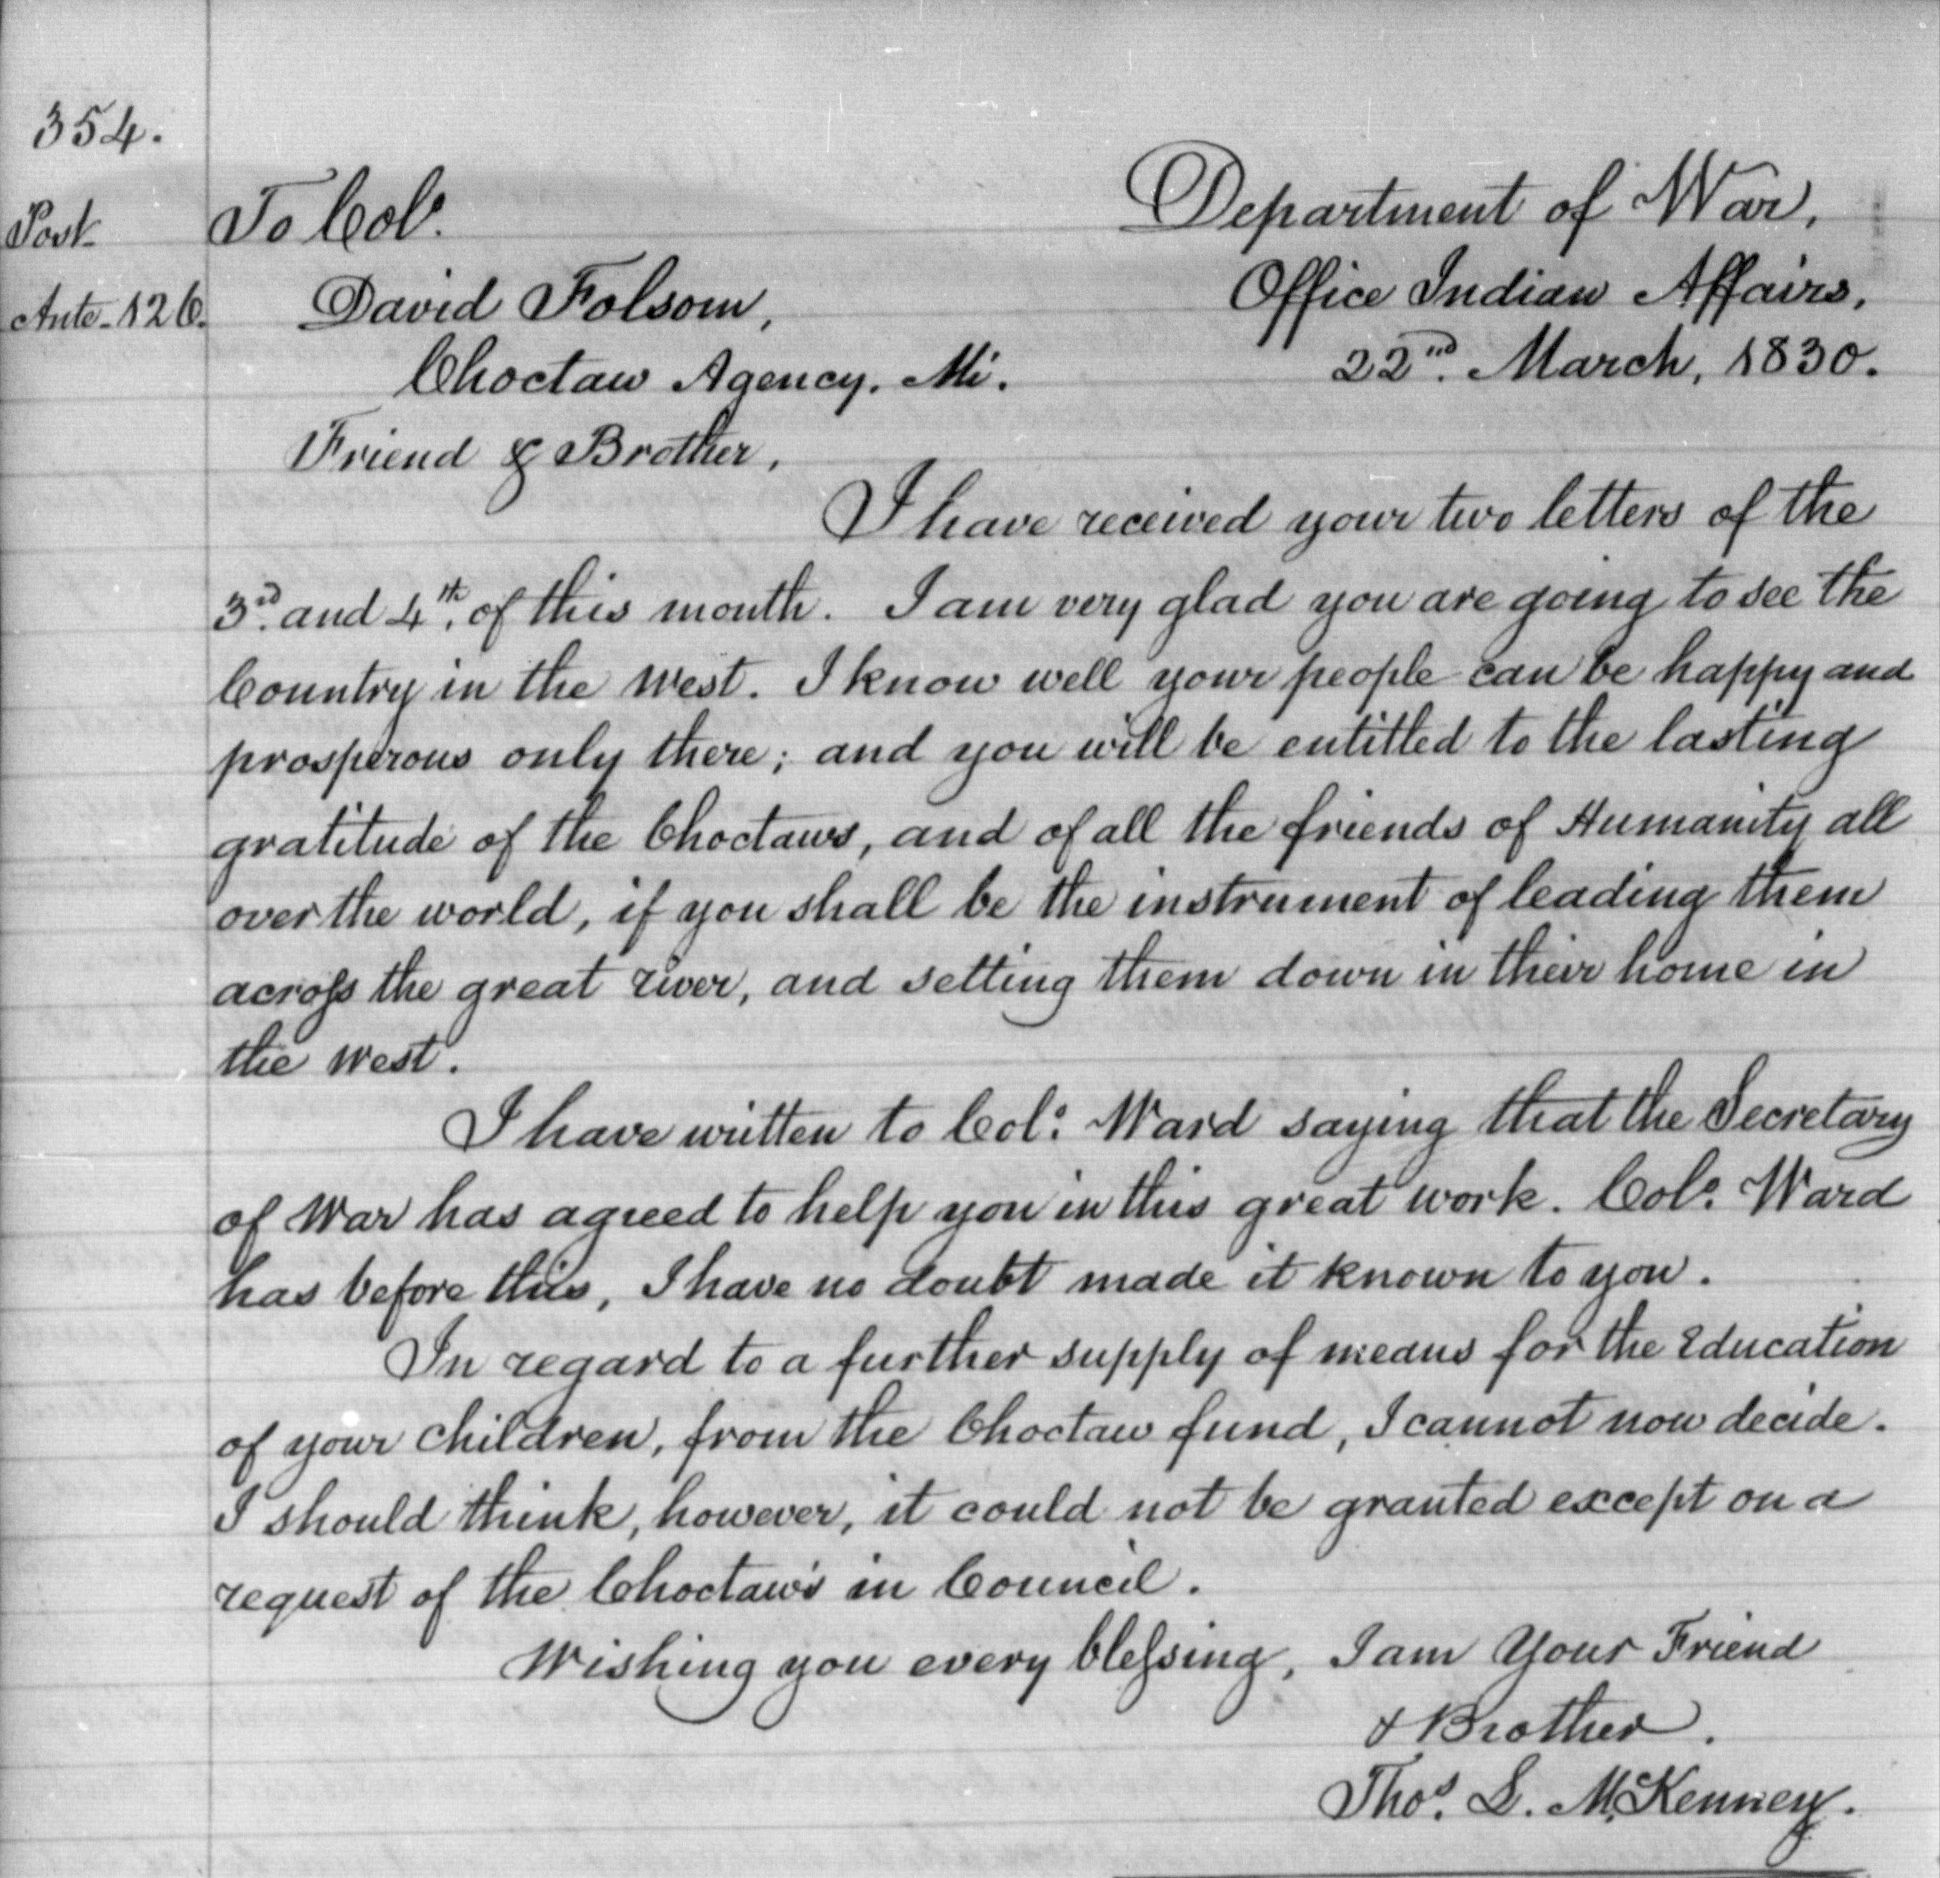 354.
Post
Ante-126.
To Col.
Department of War,
David Folsom,
Office Indian Affairs,
Choctaw Agency. Mi.
22nd. March, 1830.
Friend & Brother,
I have received your two letters of the
3d. and 4th. of this month. I am very glad you are going to see the
Country in the West. I know well your people can be happy and
prosperous only there; and you will be entitled to the lasting
gratitude of the Choctaws, and of all the friends of Humanity all
over the world, if you shall be the instrument of leading them
across the great river, and setting them down in their home in
the West.
I have written to Col: Ward saying that the Secretary
of War has agreed to help you in this great work. Col: Ward
has before this, I have no doubt made it known to you.
In regard to a further supply of means for the Education
of your children, from the Choctaw fund, I cannot now decide.
I should think, however, it could not be granted except on a
request of the Choctaws in Council.
Wishing you every blessing, I am Your Friend
& Brother.
Thos. L. McKenney.